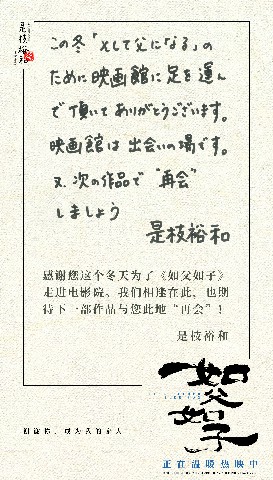 是枝裕和
この冬「そして父になる」の
ために映画館に足を運ん
で頂いてありがとうございます。
映画館は出会いの場です。
又、次の作品で“再会”
しましょう
是枝裕和
感谢您这个冬天为了《如父如子》
走进电影院。我们相逢在此，也期
待下一部作品与您此地“再会”！
是枝裕和
如父
如子
谢谢你，成为我的家人
正在温暖热映中